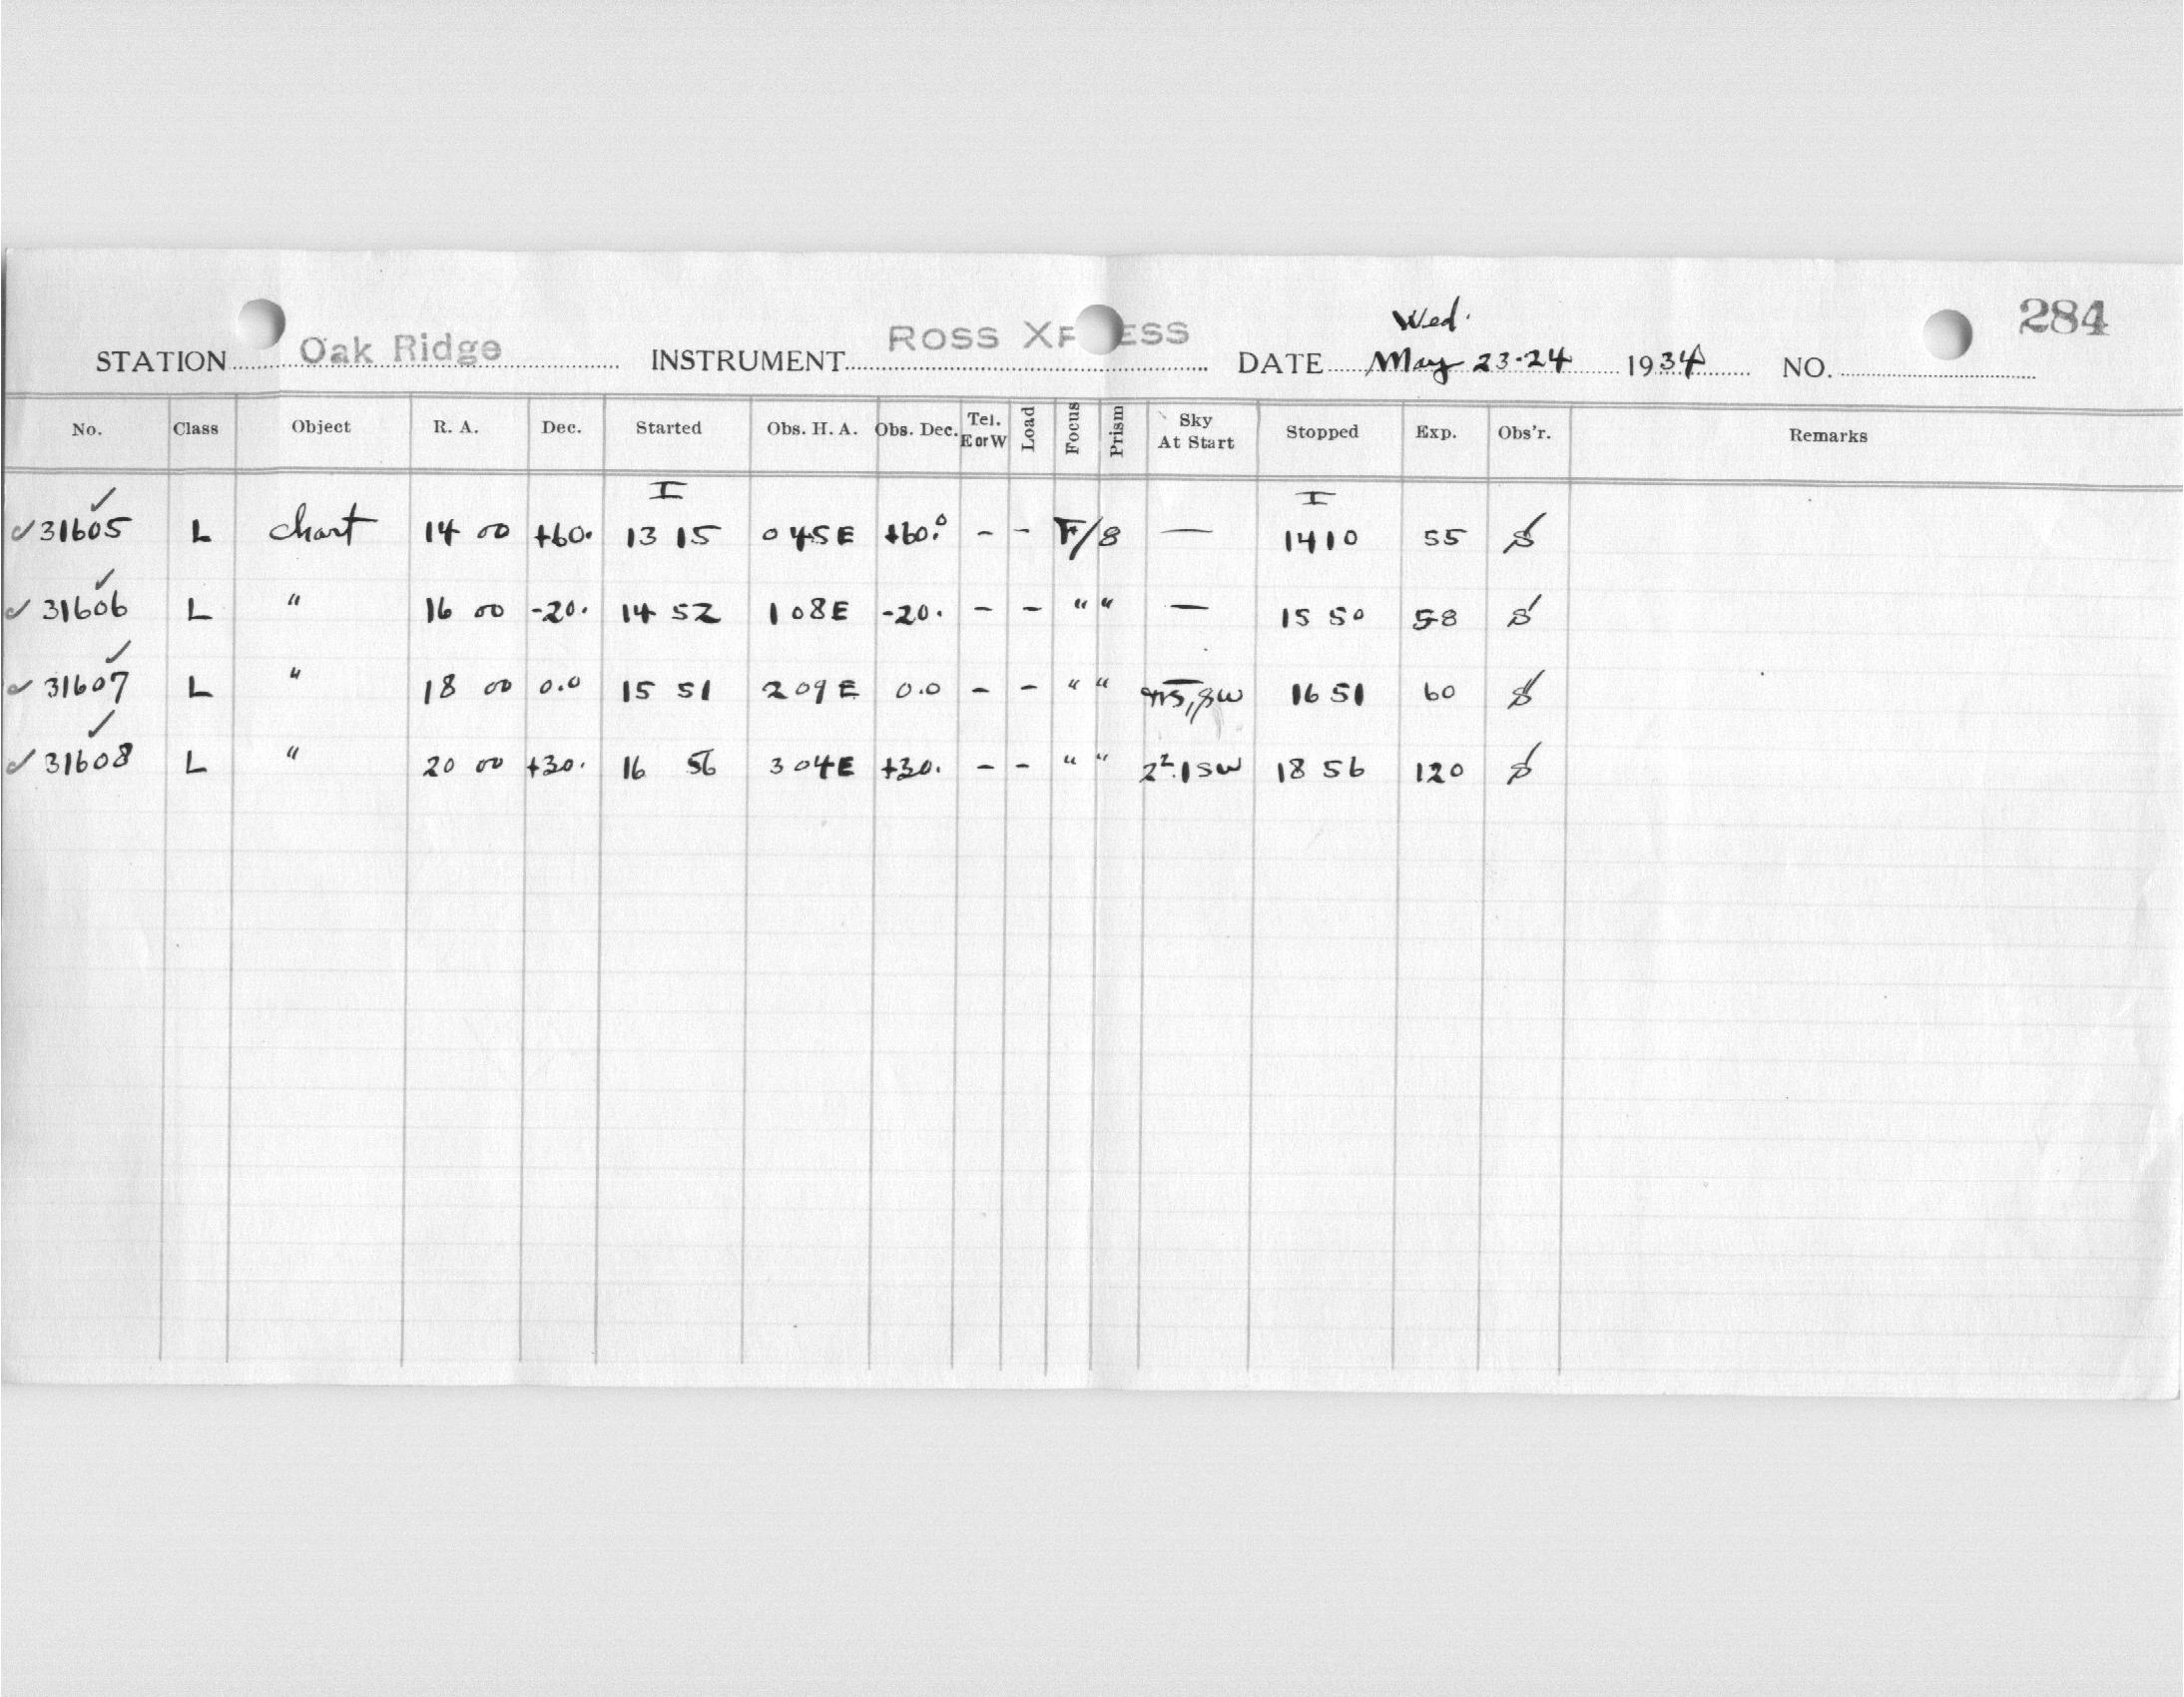 284
Wed.
STATION Oak Ridge INSTRUMENT ROSS XPRESS DATE May 23-24 1934 NO.
No. Class Object R. A. Dec. Started Obs. H. A. Obs. Dec. Tel. E or W Load Focus Prism Sky At Start Stopped Exp. Obs'r. Remarks
I I
✓ 31605 L chart 14 00 +60. 13 15 0 45 E +60.° - - F/8 — 14 10 55 S
✓ 31606 L " 16 00 -20. 14 52 1 08 E -20. - - " " — 15 50 58 S
✓ 31607 L " 18 00 0.0 15 51 2 09 E 0.0 - - " " 16 51 60 S
✓ 31608 L " 20 00 +30. 16 56 3 04 E +30. - - " " 2².1 SW 18 56 120 S